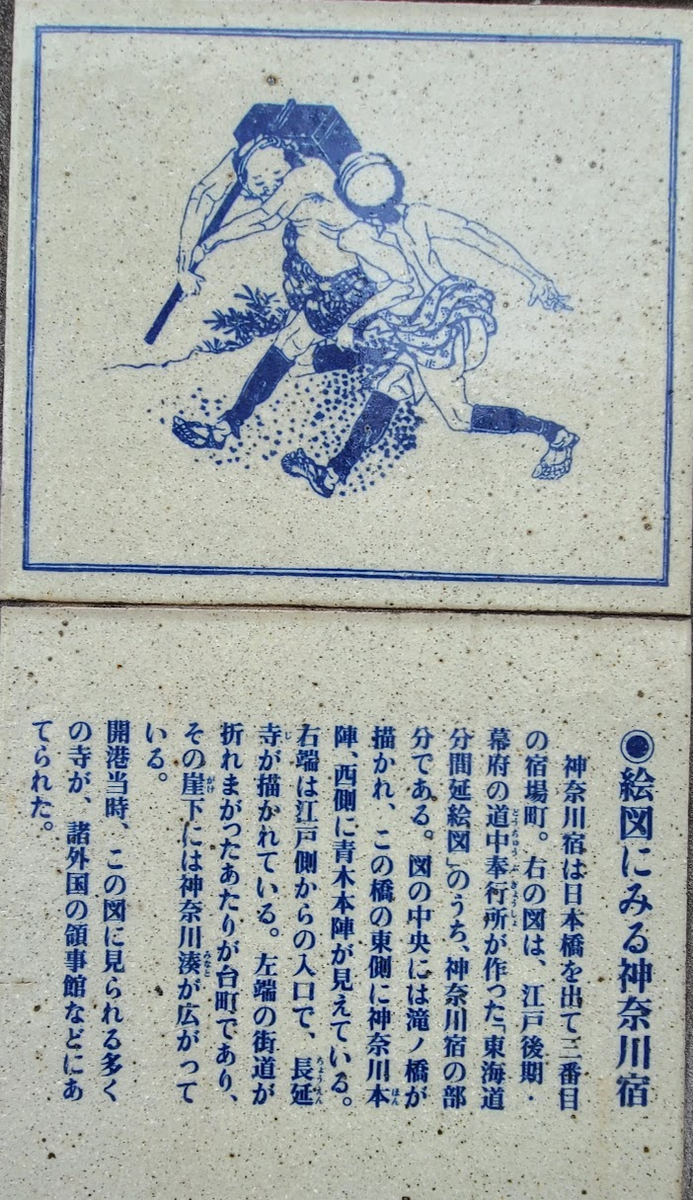 ◉絵図にみる神奈川宿
神奈川宿は日本橋を出て三番目
の宿場町。右の図は、江戸後期・
幕府の道中奉行所が作った「東海道
分間延絵図」のうち、神奈川宿の部
分である。図の中央には滝ノ橋が
描かれ、この橋の東側に神奈川本
陣、西側に青木本陣が見えている。
右端は江戸側からの入口で、長延
寺が描かれている。左端の街道が
折れまがったあたりが台町であり、
その崖下には神奈川湊が広がって
いる。
開港当時、この図に見られる多く
の寺が、諸外国の領事館などにあ
てられた。